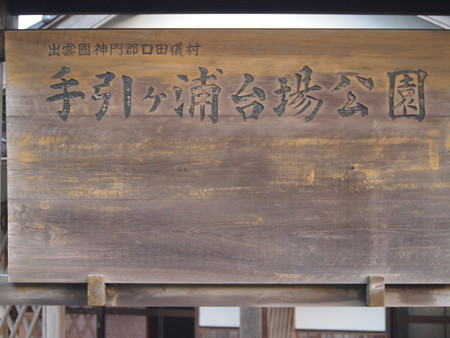 出雲國神門郡口田儀村
手引ヶ浦台場公園